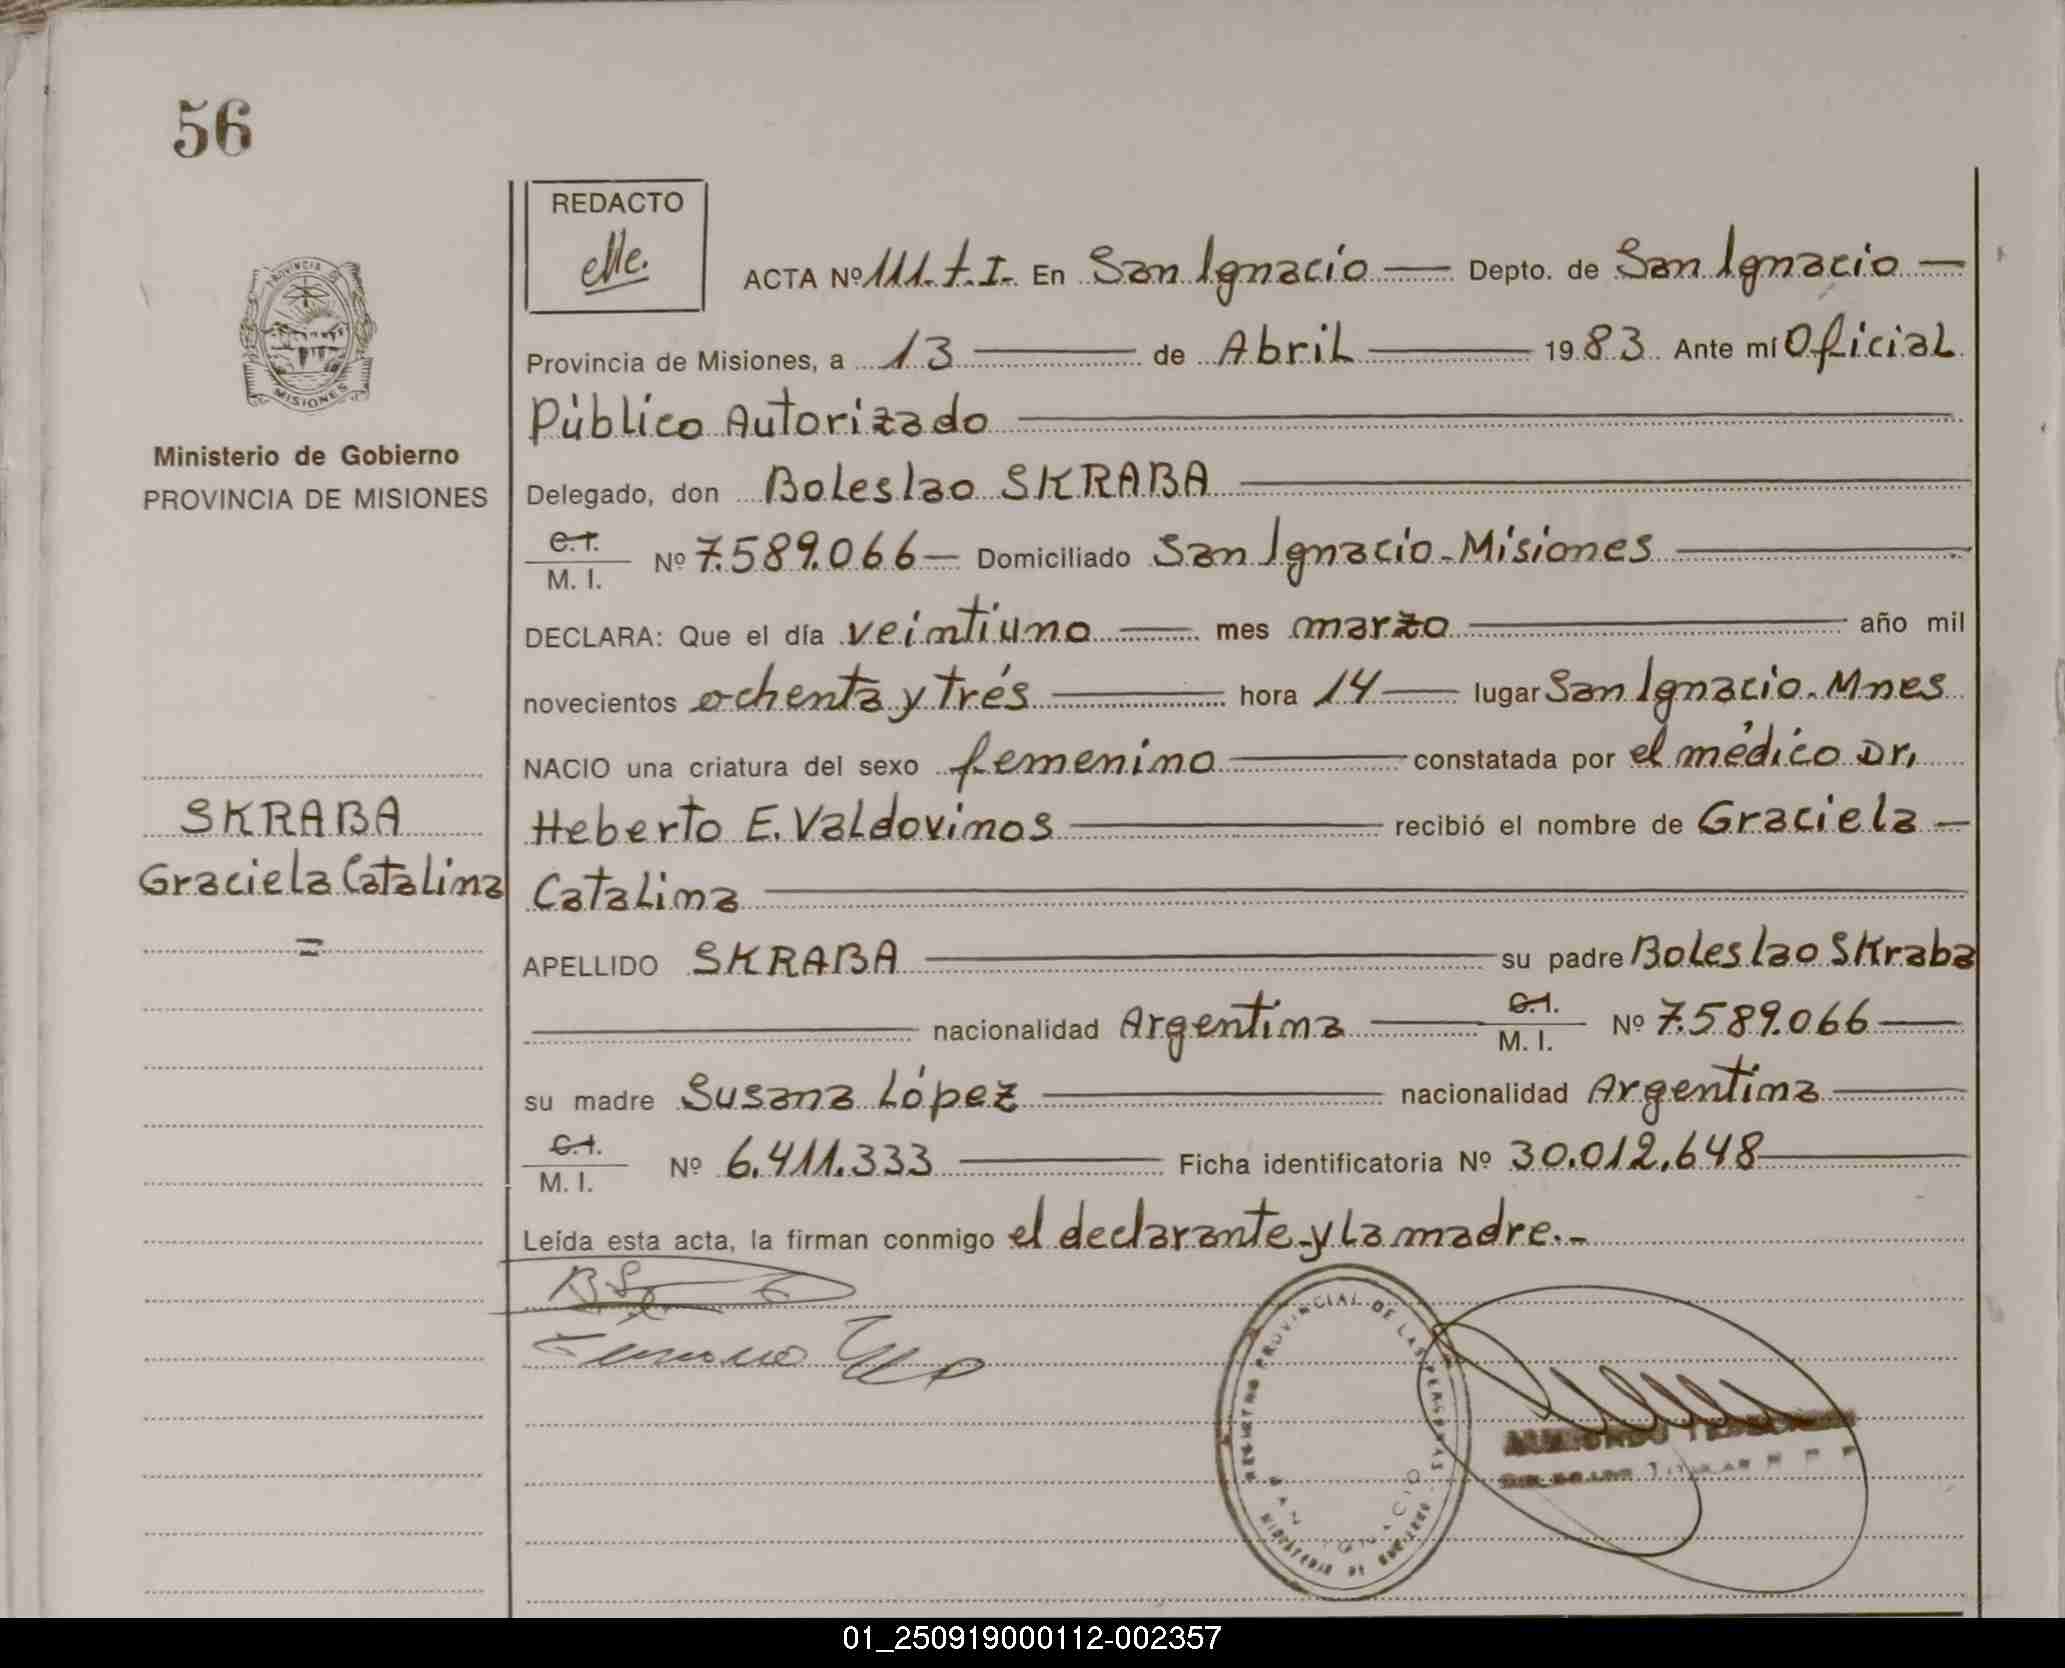 56
REDACTO
PROVINCIA DE
MISIONES
Ministerio de Gobierno
PROVINCIA DE MISIONES
ACTA Nº 111. t. I. En San Ignacio — Depto. de San Ignacio —
Provincia de Misiones, a 13 — de Abril — 1983 Ante mí Oficial
Público Autorizado —
Delegado, don Boleslao SKRABA —
C.I. / M. I. Nº 7.589.066 — Domiciliado San Ignacio - Misiones —
DECLARA: Que el día veintiuno — mes marzo — año mil
novecientos ochenta y trés — hora 14 — lugar San Ignacio. Mnes
NACIO una criatura del sexo femenino — constatada por el médico Dr.
Heberto E. Valdovinos — recibió el nombre de Graciela —
Catalina —
SKRABA
Graciela Catalina
=
APELLIDO SKRABA — su padre Boleslao Skraba
— nacionalidad Argentina — C.I. / M. I. Nº 7.589.066 —
su madre Susana López — nacionalidad Argentina —
C.I. / M. I. Nº 6.411.333 — Ficha identificatoria Nº 30.012.648 —
Leída esta acta, la firman conmigo el declarante y la madre.-
REGISTRO PROVINCIAL DE LAS PERSONAS
SAN IGNACIO
TITULAR
01_250919000112-002357